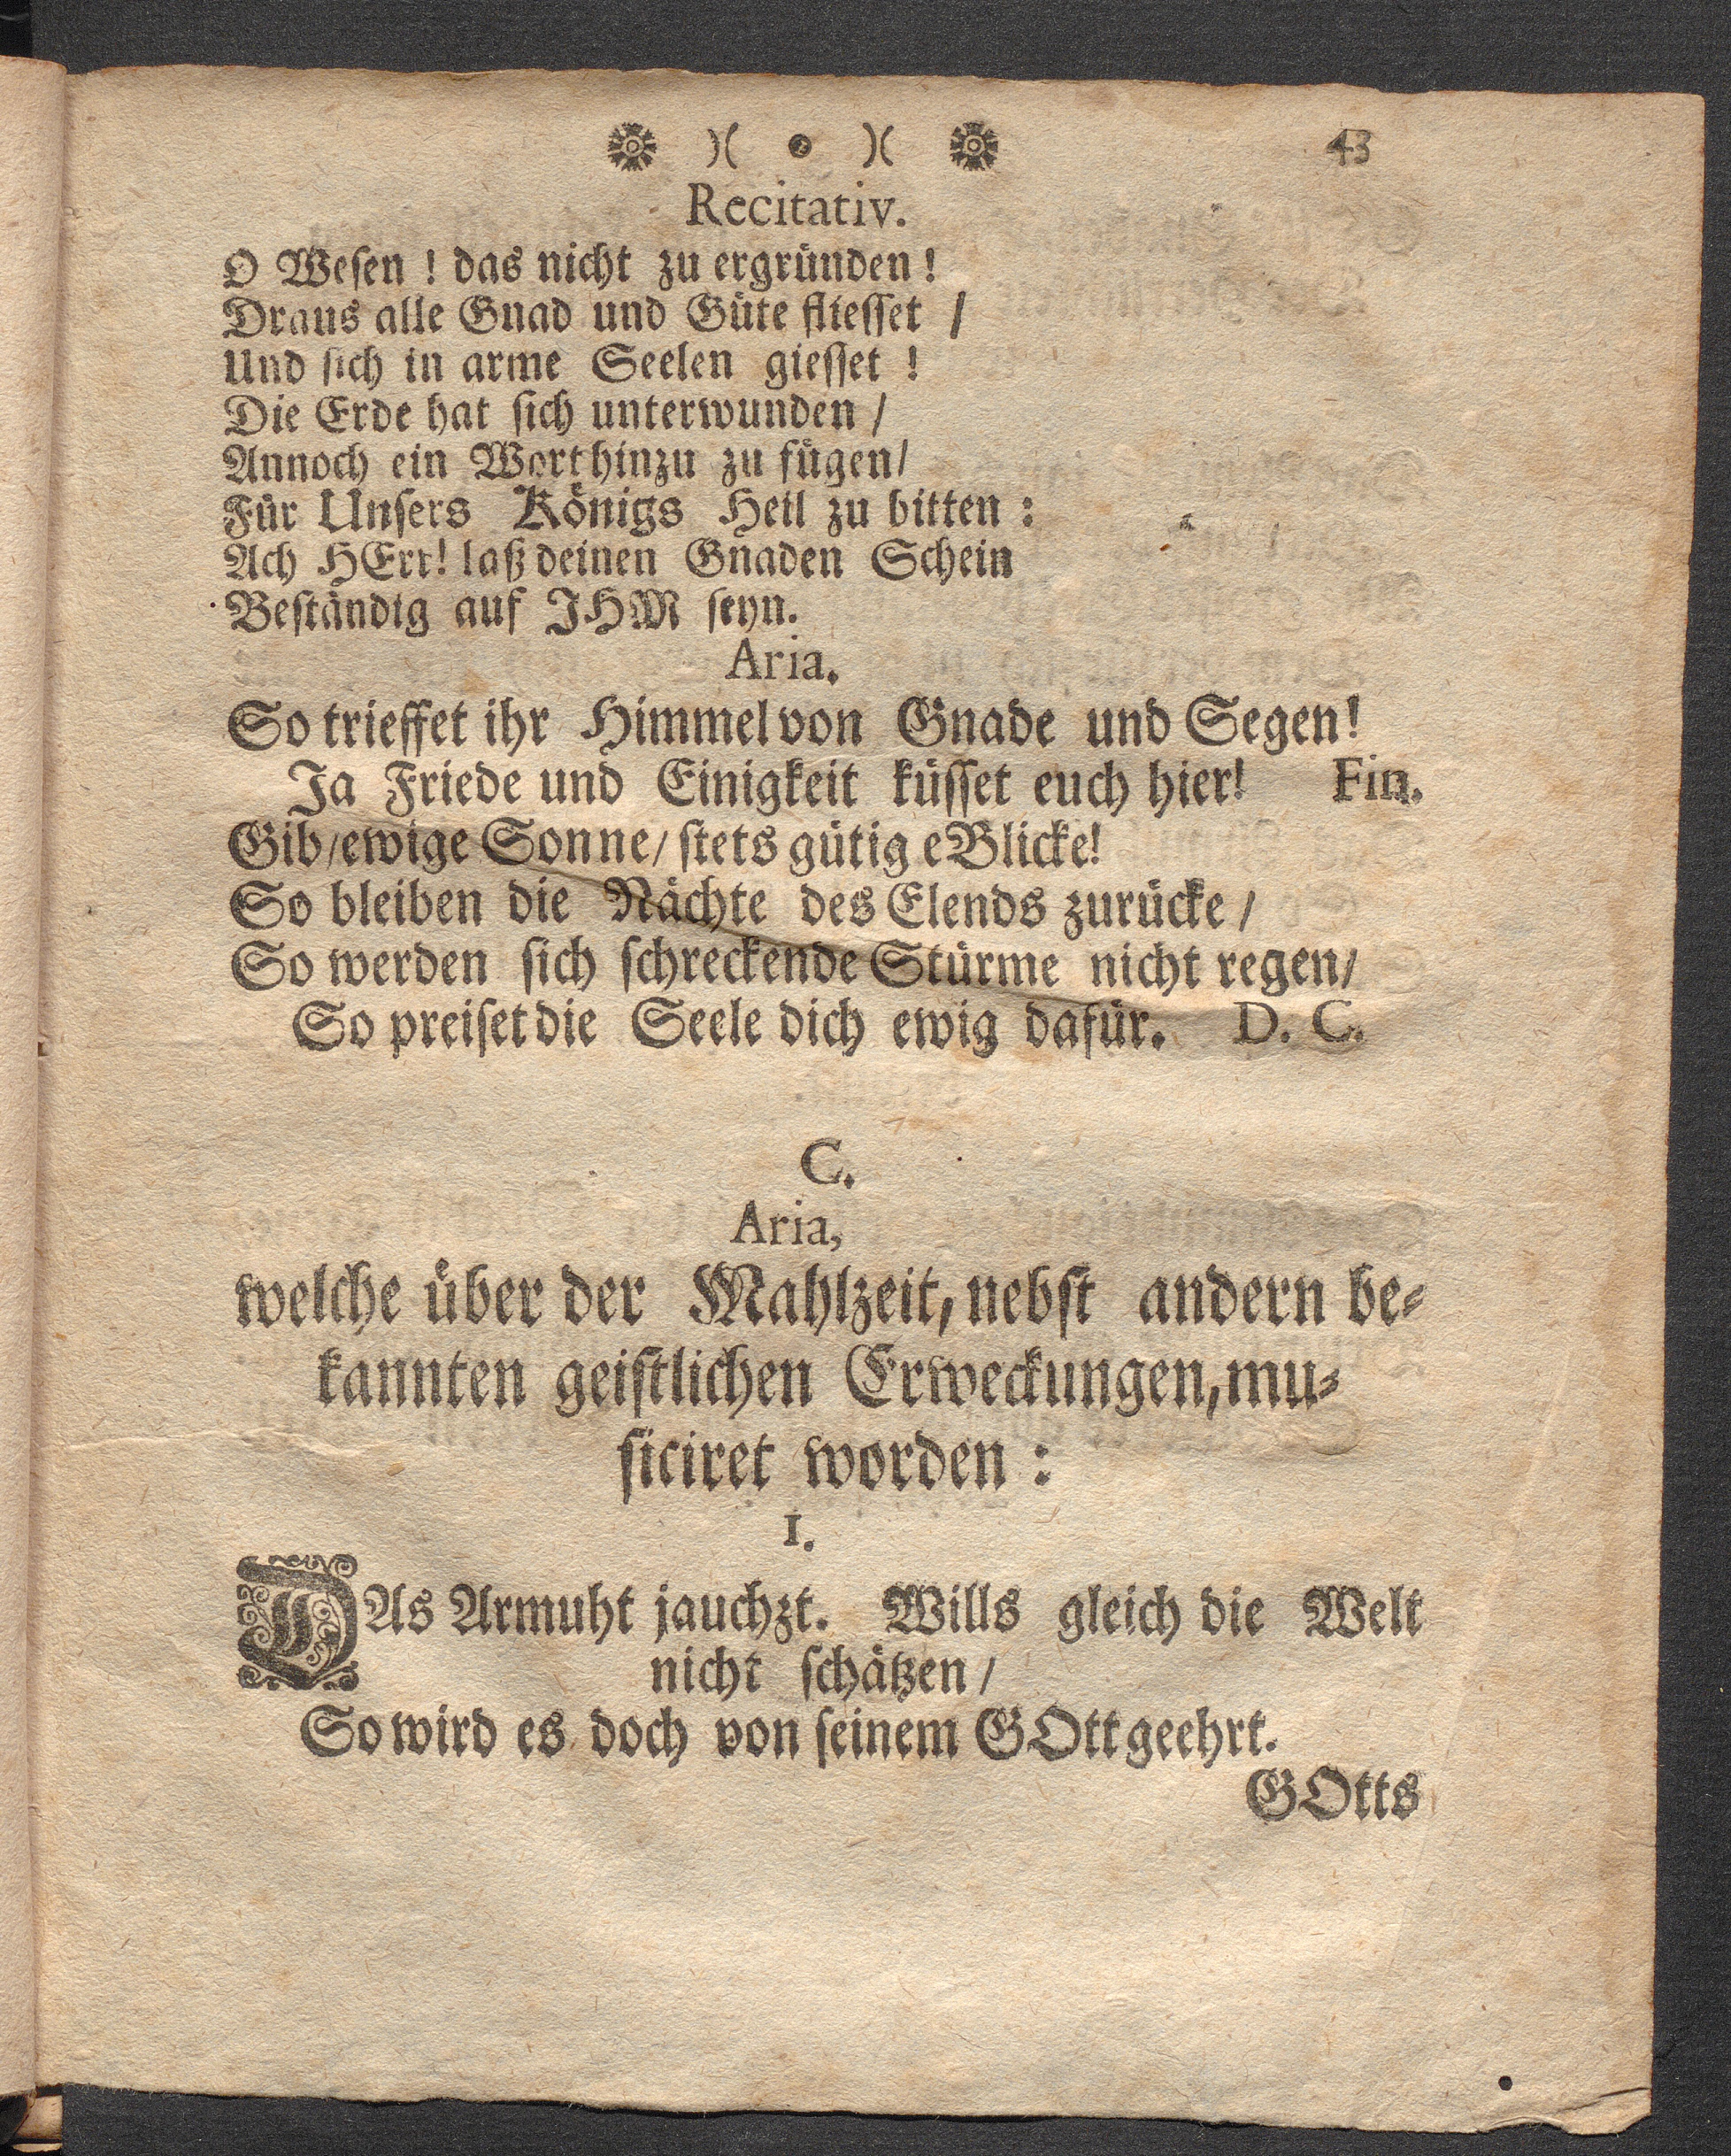 )( • )( 43
Recitativ.
O Weſen ! das nicht zu ergründen !
Draus alle Gnad und Güte flieſſet /
Und ſich in arme Seelen gieſſet !
Die Erde hat ſich unterwunden /
Annoch ein Wort hinzu zu fügen/
Für Unſers Königs Heil zu bitten :
Ach HErr! laß deinen Gnaden Schein
Beſtändig auf JHM ſeyn.
Aria.
So trieffet ihr Himmel von Gnade und Segen!
Ja Friede und Einigkeit küſſet euch hier! Fin.
Gib/ewige Sonne/ ſtets gütig eBlicke!
So bleiben die Nächte des Elends zurücke /
So werden ſich ſchreckende Stürme nicht regen/
So preiſet die Seele dich ewig dafür. D. C.
C.
Aria,
welche über der Mahlzeit, nebſt andern be⸗
kannten geiſtlichen Erweckungen, mu⸗
ſiciret worden :
1.
DAs Armuht jauchzt. Wills gleich die Welt
nicht ſchätzen /
So wird es doch von ſeinem GOtt geehrt.
GOtts